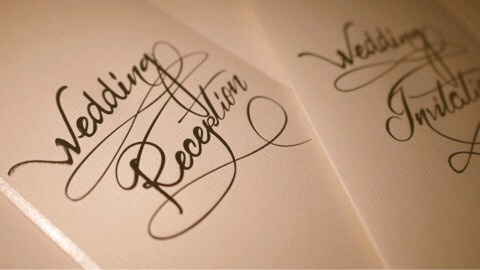 Wedding
Reception
Wedding
Invitati